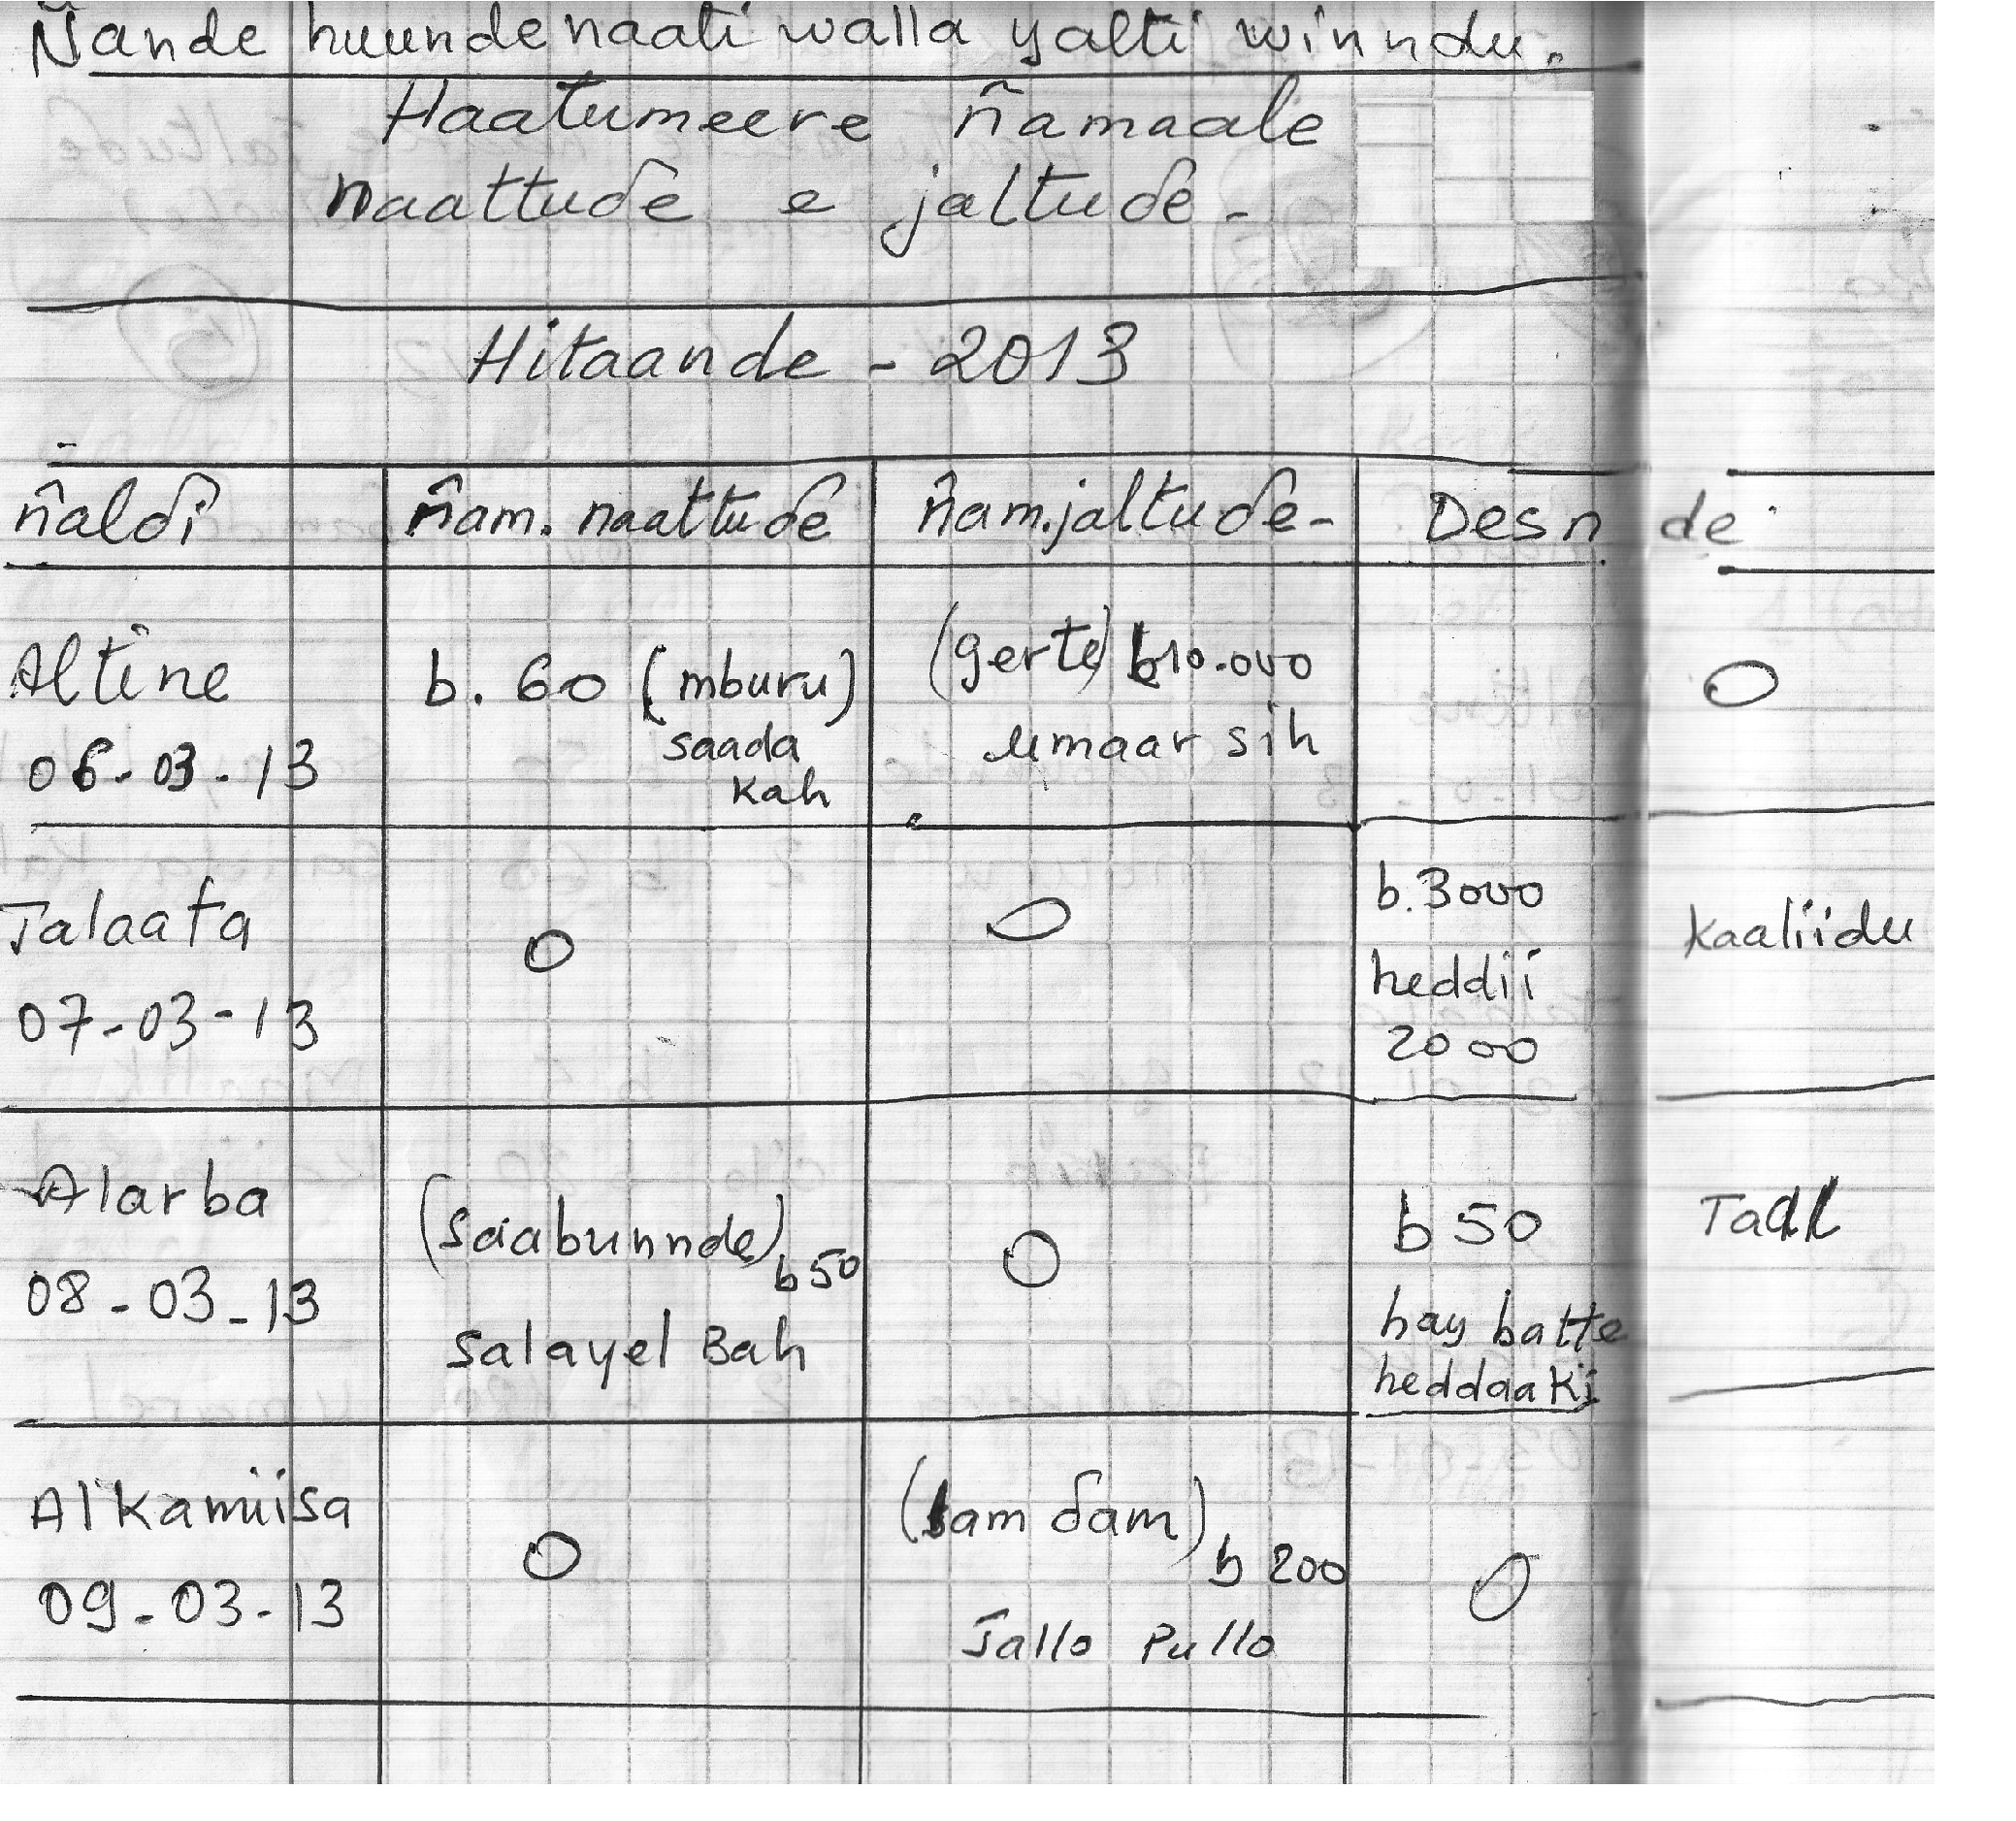 Ñande huunde naati walla yalti winndu.
Haatumeere ñamaale
naattuɗe e jaltuɗe -
Hitaande - 2013
ñalɗi ñam. naattuɗe ñam. jaltuɗe - Desnde
Altine
06-03-13
b. 60 (mburu)
saada
kah
(gerte) b10.000
umaar sih
0
Talaata
07-03-13
0
0
b. 3000
heddii
2000
Kaaliidu
Alarba
08-03-13
(saabunnde) b 50
salayel Bah
0
b 50
hay batte
heddaaki
Tall
Alkamiisa
09-03-13
0
(lamɗam) b 200
Jallo Pullo
0